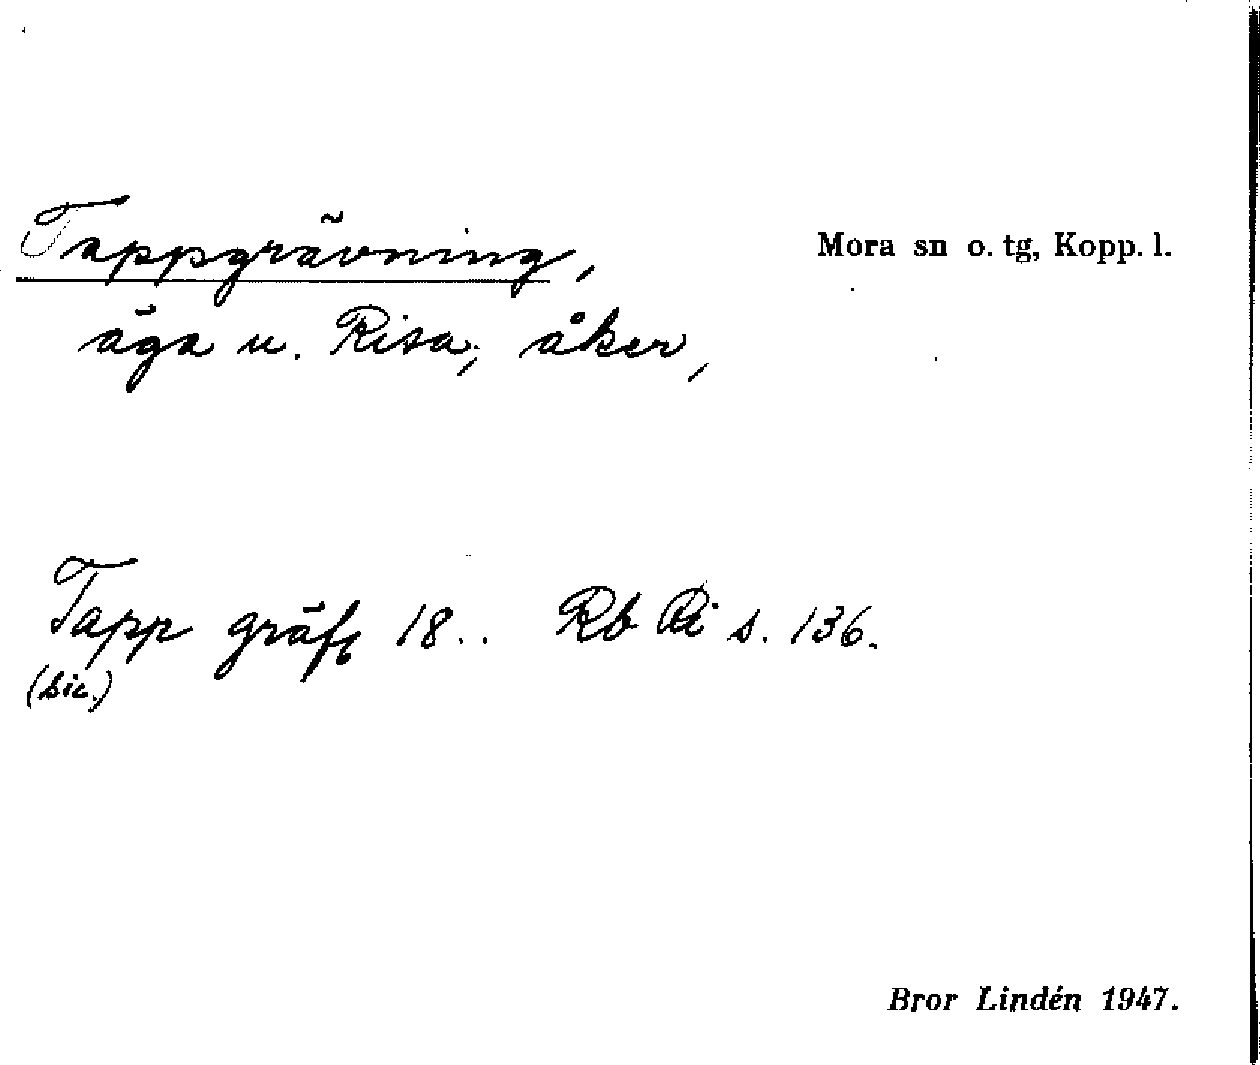 Tappgrävning, Mora sn o. tg, Kopp. l.
äga u. Risa, åker,
Tapp gräfg 18.. Rb Ri s. 136.
(sic.)
Bror Lindén 1947.